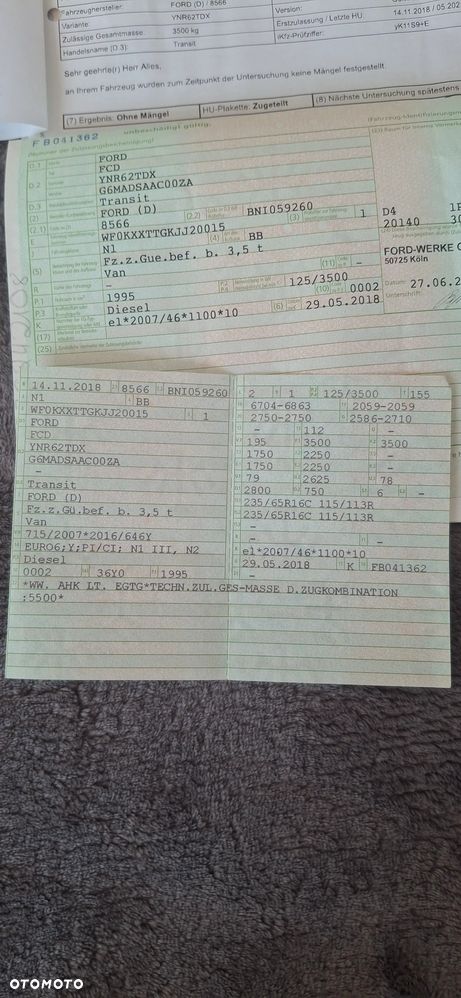 Fahrzeughersteller: FORD (D) / 8566
Variante: YNR62TDX Version:
Zulässige Gesamtmasse: 3500 kg Erstzulassung / Letzte HU: 14.11.2018 / 05.202
Handelsname (D.3): Transit iKfz-Prüfziffer: yK11S9+E
Sehr geehrte(r) Herr Alles,
an Ihrem Fahrzeug wurden zum Zeitpunkt der Untersuchung keine Mängel festgestellt.
(7) Ergebnis: Ohne Mängel HU-Plakette: Zugeteilt (8) Nächste Untersuchung spätestens
unbeschädigt gültig.
FB041362
D.1 FORD
FCD
D.2 YNR62TDX
G6MADSAAC00ZA
D.3 Transit
(2) FORD (D) (2.2) BNI059260
(2.1) 8566 (3) 1
E WF0KXXTTGKJJ20015
J N1 (4) BB
Fz.z.Gue.bef. b. 3,5 t
(5) Van
R – (11) –
P.1 1995 125/3500
P.3 Diesel (10) 0002
K e1*2007/46*1100*10 (6) 29.05.2018
(17)
(25)
D4
20140
FORD-WERKE G
50725 Köln
Datum: 27.06.2
Unterschrift:
14.11.2018 8566 BNI059260
N1 BB
WF0KXXTTGKJJ20015 1
FORD
FCD
YNR62TDX
G6MADSAAC00ZA
–
Transit
FORD (D)
Fz.z.Gü.bef. b. 3,5 t
Van
715/2007*2016/646Y
EURO6;Y;PI/CI; N1 III, N2
Diesel
0002 36Y0 1995
*WW. AHK LT. EGTG*TECHN.ZUL.GES-MASSE D.ZUGKOMBINATION
:5500*
2 1 125/3500 155
6704-6863 2059-2059
2750-2750 2586-2710
– 112 – –
195 3500 3500
1750 2250 –
1750 2250 –
79 2625 78
2800 750 6 –
235/65R16C 115/113R
235/65R16C 115/113R
– –
–
e1*2007/46*1100*10
29.05.2018 K FB041362
–
OTOMOTO